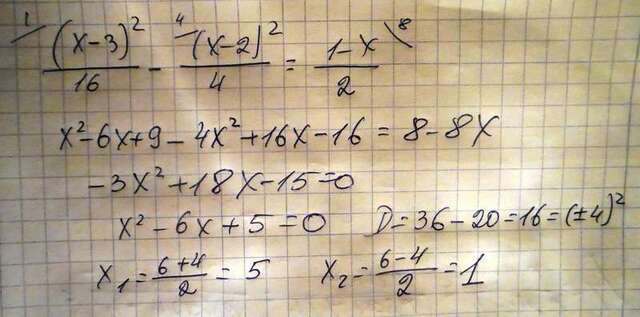 1/ (x-3)²/16 - 4/ (x-2)²/4 = 1-x/2 \8
x²-6x+9-4x²+16x-16=8-8x
-3x²+18x-15=0
x²-6x+5=0 D=36-20=16=(±4)²
x₁=6+4/2=5 x₂=6-4/2=1